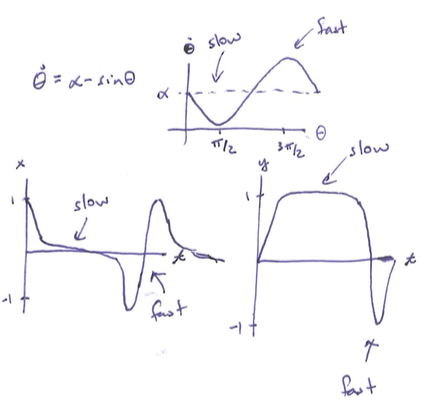 θ̇ = α - sinθ
θ̇ slow fast
α
π/2 3π/2 θ
x
1 slow
t
-1 fast
y slow
1
t
-1
fast